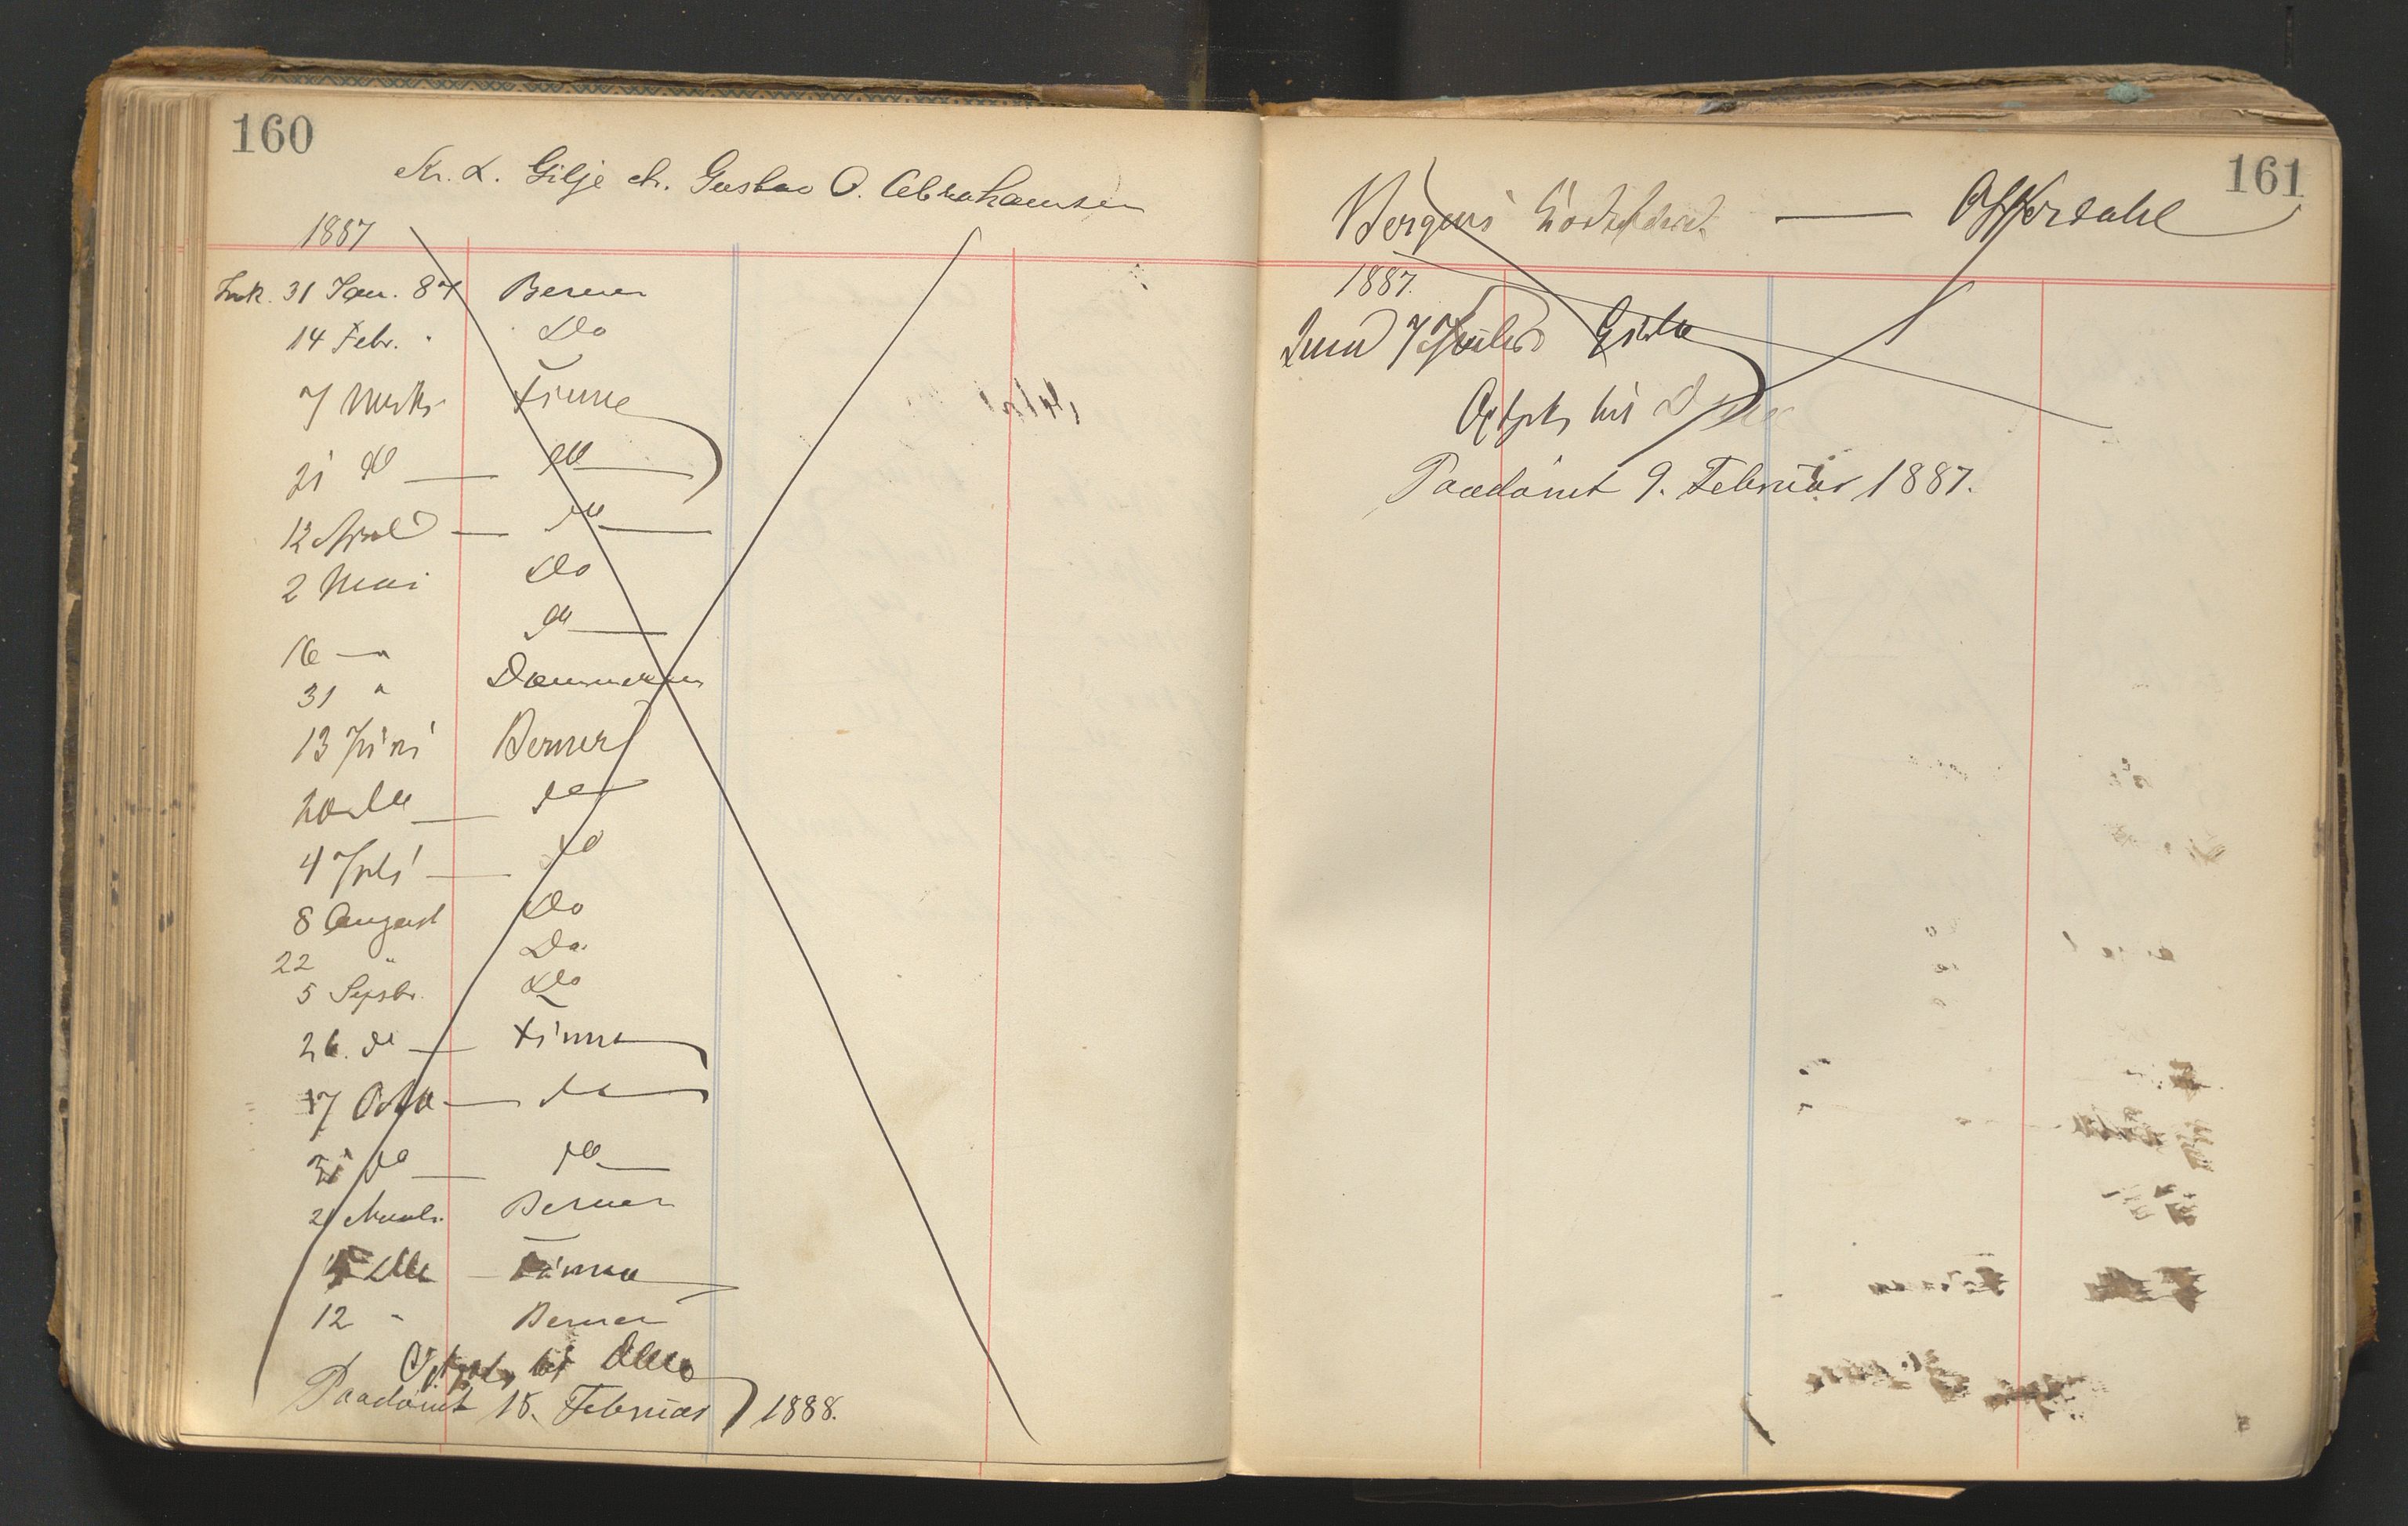 160
Kr. L. Gilje ctr. Gustav O. Abrahamsen
1887
Ink. 31 Jan. 87 Berner
14 Febr. " Do
7 Marts Finne
21 do — do —
12 April — do —
2 Mai Do
16 — " do —
31 " Dammann
13 Juni Berner
20 do — do
4 Juli — do
8 August Do
22 " Do
5 Septbr. Do
26. do — Finne
17 Octo — do
31 do — do —
21 Novbr. Berner
do — Finne
12 " Berner
Optyk til Doms
Paadömt 15. Februar 1888.
161
Bergens — Offerdahl
1887.
Optyk til Doms
Paadömt 9. Februar 1887.